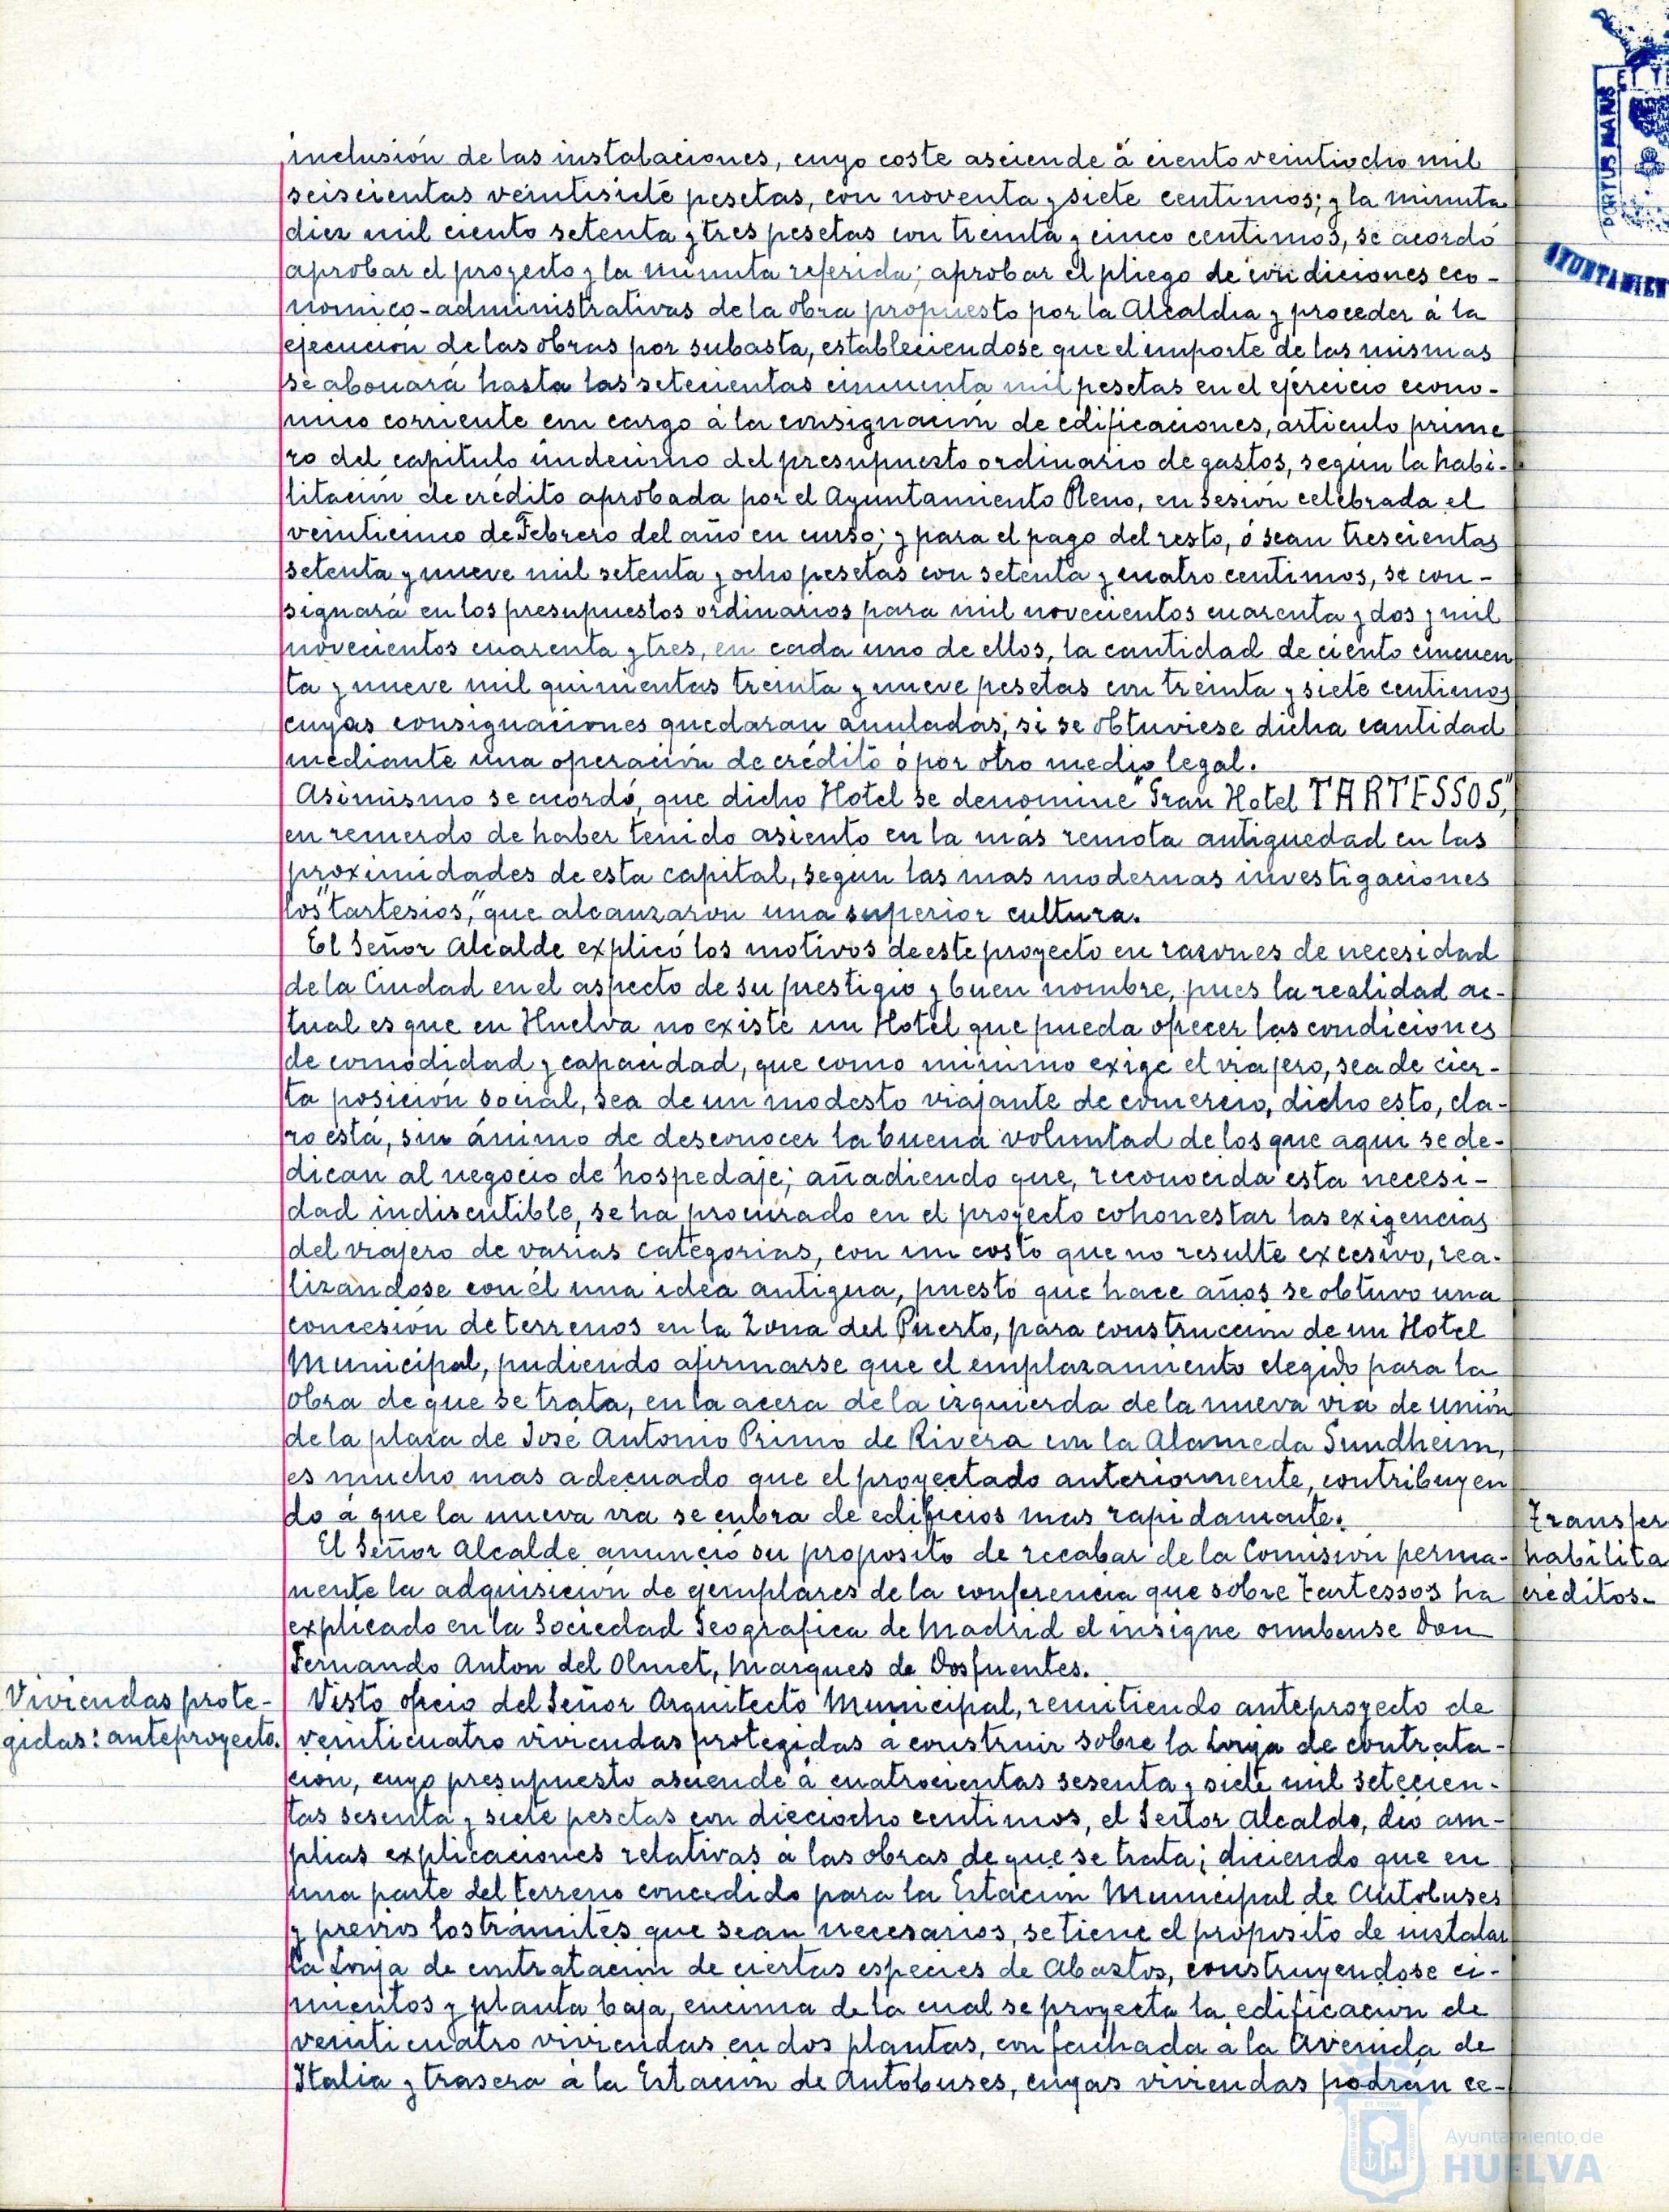 inclusión de las instalaciones, cuyo coste asciende á ciento veintiocho mil
seiscientas veintisiete pesetas, con noventa y siete centimos; y la minuta
diez mil ciento setenta y tres pesetas con treinta y cinco centimos, se acordó
aprobar el proyecto y la minuta referida; aprobar el pliego de condiciones eco-
nomico-administrativas de la obra propuesto por la Alcaldia y proceder á la
ejecución de las obras por subasta, estableciendose que el importe de las mismas
se abonará hasta las setecientas cincuenta mil pesetas en el ejercicio econo-
mico corriente con cargo á la consignación de edificaciones, articulo prime
ro del capitulo undecimo del presupuesto ordinario de gastos, según la habi-
litación de crédito aprobada por el Ayuntamiento Pleno, en sesión celebrada el
veinticinco de Febrero del año en curso; y para el pago del resto, ó sean trescientas
setenta y nueve mil setenta y ocho pesetas con setenta y cuatro centimos, se con-
signará en los presupuestos ordinarios para mil novecientos cuarenta y dos y mil
novecientos cuarenta y tres, en cada uno de ellos, la cantidad de ciento cincuen
ta y nueve mil quinientas treinta y nueve pesetas con treinta y siete centimos
cuyas consignaciones quedaran anuladas, si se obtuviese dicha cantidad
mediante una operación de crédito ó por otro medio legal.
Asimismo se acordó, que dicho Hotel se denomine "Gran Hotel TARTESSOS",
en recuerdo de haber tenido asiento en la más remota antiguedad en las
proximidades de esta capital, según las mas modernas investigaciones
los "tartesios", que alcanzaron una superior cultura.
El Señor Alcalde explicó los motivos de este proyecto en razones de necesidad
de la Ciudad en el aspecto de su prestigio y buen nombre, pues la realidad ac-
tual es que en Huelva no existe un Hotel que pueda ofrecer las condiciones
de comodidad y capacidad, que como minimo exige el viajero, sea de cier-
ta posición social, sea de un modesto viajante de comercio, dicho esto, cla-
ro está, sin ánimo de desconocer la buena voluntad de los que aqui se de-
dican al negocio de hospedaje; añadiendo que, reconocida esta necesi-
dad indiscutible, se ha procurado en el proyecto cohonestar las exigencias
del viajero de varias categorias, con un costo que no resulte excesivo, rea-
lizandose con él una idea antigua, puesto que hace años se obtuvo una
concesión de terrenos en la Zona del Puerto, para construccion de un Hotel
Municipal, pudiendo afirmarse que el emplazamiento elegido para la
obra de que se trata, en la acera de la izquierda de la nueva via de unión
de la plaza de José Antonio Primo de Rivera con la Alameda Sundheim,
es mucho mas adecuado que el proyectado anteriormente, contribuyen
do á que la nueva via se cubra de edificios mas rapidamente.
El Señor Alcalde anunció su proposito de recabar de la Comisión perma-
nente la adquisición de ejemplares de la conferencia que sobre Tartessos ha
explicado en la Sociedad Geografica de Madrid el insigne onubense Don
Fernando Anton del Olmet, Marques de Dosfuentes.
Viviendas prote-
gidas: anteproyecto.
Visto oficio del Señor Arquitecto Municipal, remitiendo anteproyecto de
veinticuatro viviendas protegidas á construir sobre la Lonja de contrata-
cion, cuyo presupuesto asciende á cuatrocientas sesenta y siete mil setecien-
tas sesenta y siete pesetas con dieciocho centimos, el Señor Alcalde, dió am-
plias explicaciones relativas á las obras de que se trata; diciendo que en
una parte del terreno concedido para la Estación Municipal de Autobuses
y previos los tramites que sean necesarios, se tiene el proposito de instalar
la Lonja de contratación de ciertas especies de Abastos, construyendose ci-
mientos y planta baja, encima de la cual se proyecta la edificacion de
veinticuatro viviendas en dos plantas, con fachada á la Avenida de
Italia y trasera á la Estación de Autobuses, cuyas viviendas podrán ce-
Transfer
habilita
créditos.-
PORTUS MARIS
AYUNTAMIEN
Ayuntamiento de
HUELVA